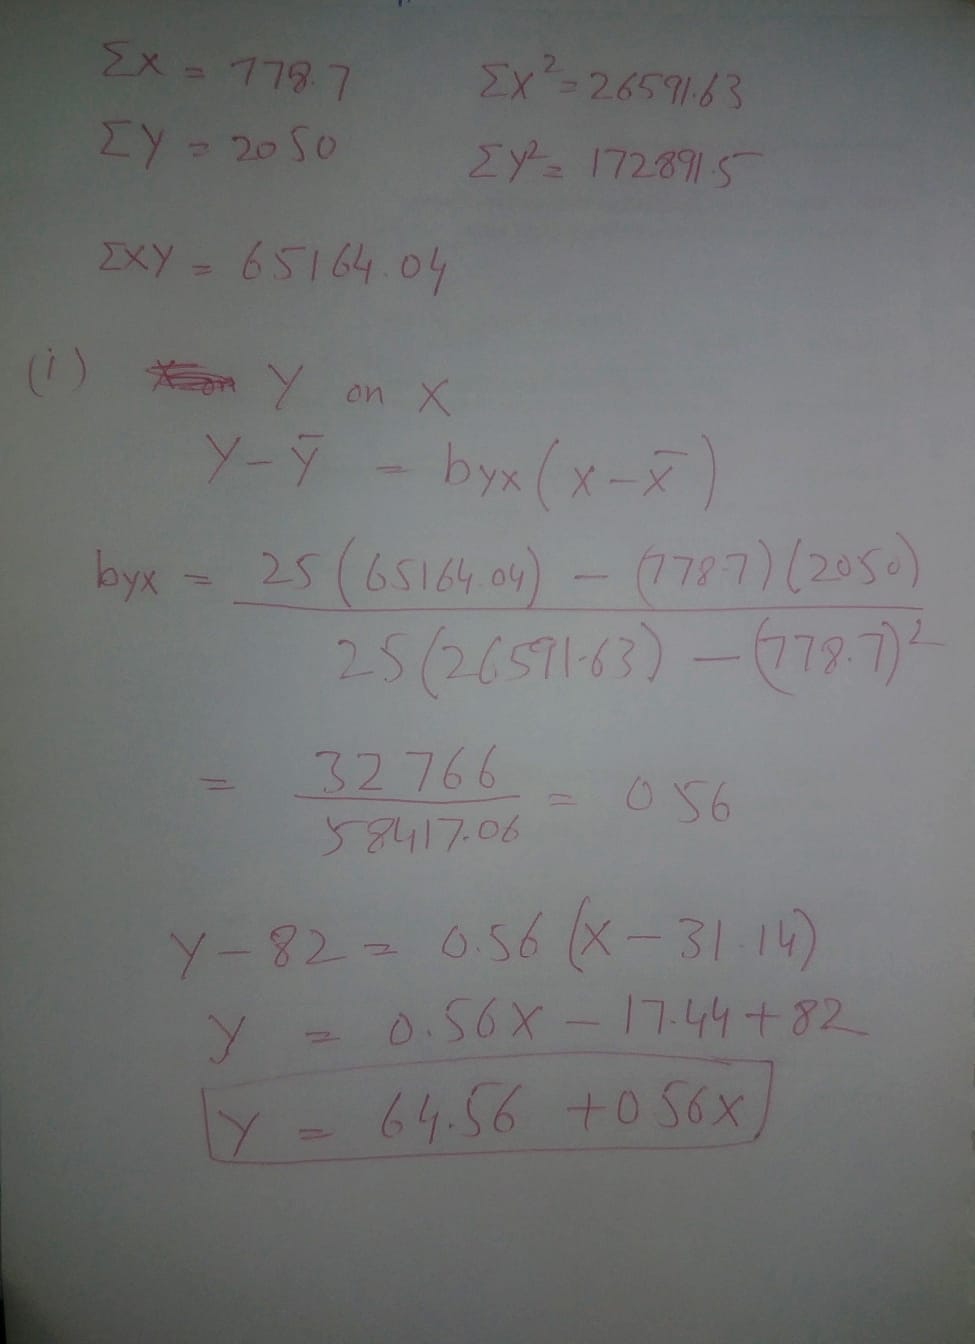 Σx = 778.7 Σx² = 26591.63
ΣY = 2050 ΣY² = 172891.5
ΣXY = 65164.04
(i) Y on X
Y - ȳ = byx (x - x̄)
byx = 25(65164.04) - (778.7)(2050)
25(26591.63) - (778.7)²
= 32766 = 0 56
58417.06
Y - 82 = 0.56 (X - 31.14)
y = 0.56X - 17.44 + 82
Y = 64.56 + 0 56x